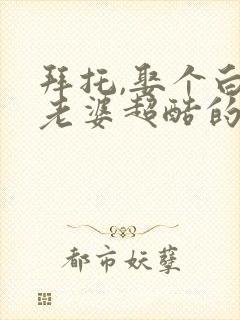 拜托,娶个白
老婆超酷的
都市妖孽